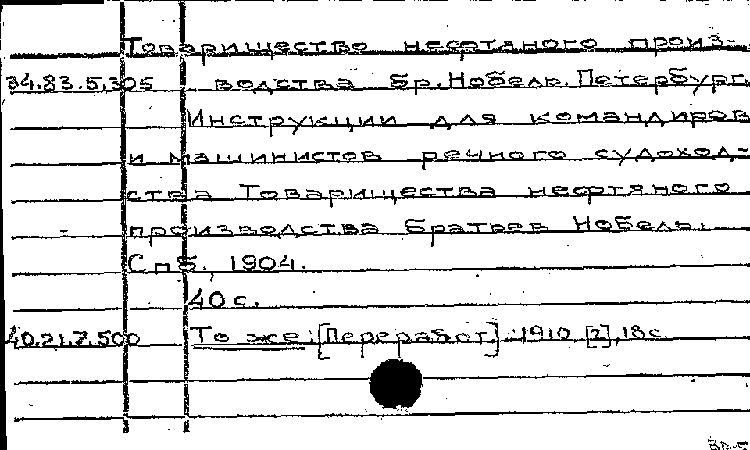 Товарищество нефтяного произ-
34.83.5.305 водства бр. Нобель. Петербург.
Инструкции для командиров
и машинистов речного судоход-
ства Товарищества нефтяного
производства Братьев Нобель.
СПб. 1904.
40 с.
40.21.7.500 То же [Переработ.] 1910 [2], 18 с